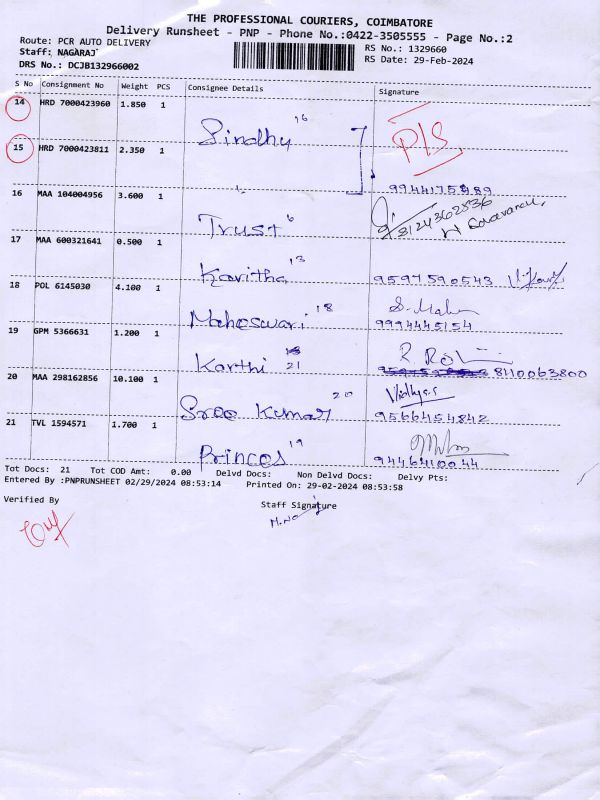 THE PROFESSIONAL COURIERS, COIMBATORE
Delivery Runsheet - PNP - Phone No.:0422-3505555 - Page No.:2
Route: PCR AUTO DELIVERY
RS No.: 1329660
Staff: NAGARAJ
RS Date: 29-Feb-2024
DRS No.: DCJB132966002
S No Consignment No Weight PCS Consignee Details Signature
14 HRD 7000423960 1.850 1
Sindhu 16
P/S
15 HRD 7000423811 2.350 1
9944175489
16 MAA 104004956 3.600 1
Trust 6
8124362836
17 MAA 600321641 0.500 1
Kavitha 13
9597590543
18 POL 6145030 4.100 1
Maheswari 18
S. Mahe
9994445154
19 GPM 5366631 1.200 1
Karthi 21
8110063800
20 MAA 298162856 10.100 1
Sree Kumar 20
9566454842
21 TVL 1594571 1.700 1
Princes 19
9446410044
Tot Docs: 21 Tot COD Amt: 0.00 Delvd Docs: Non Delvd Docs: Delvy Pts:
Entered By :PNPRUNSHEET 02/29/2024 08:53:14 Printed On: 29-02-2024 08:53:58
Verified By
Staff Signature